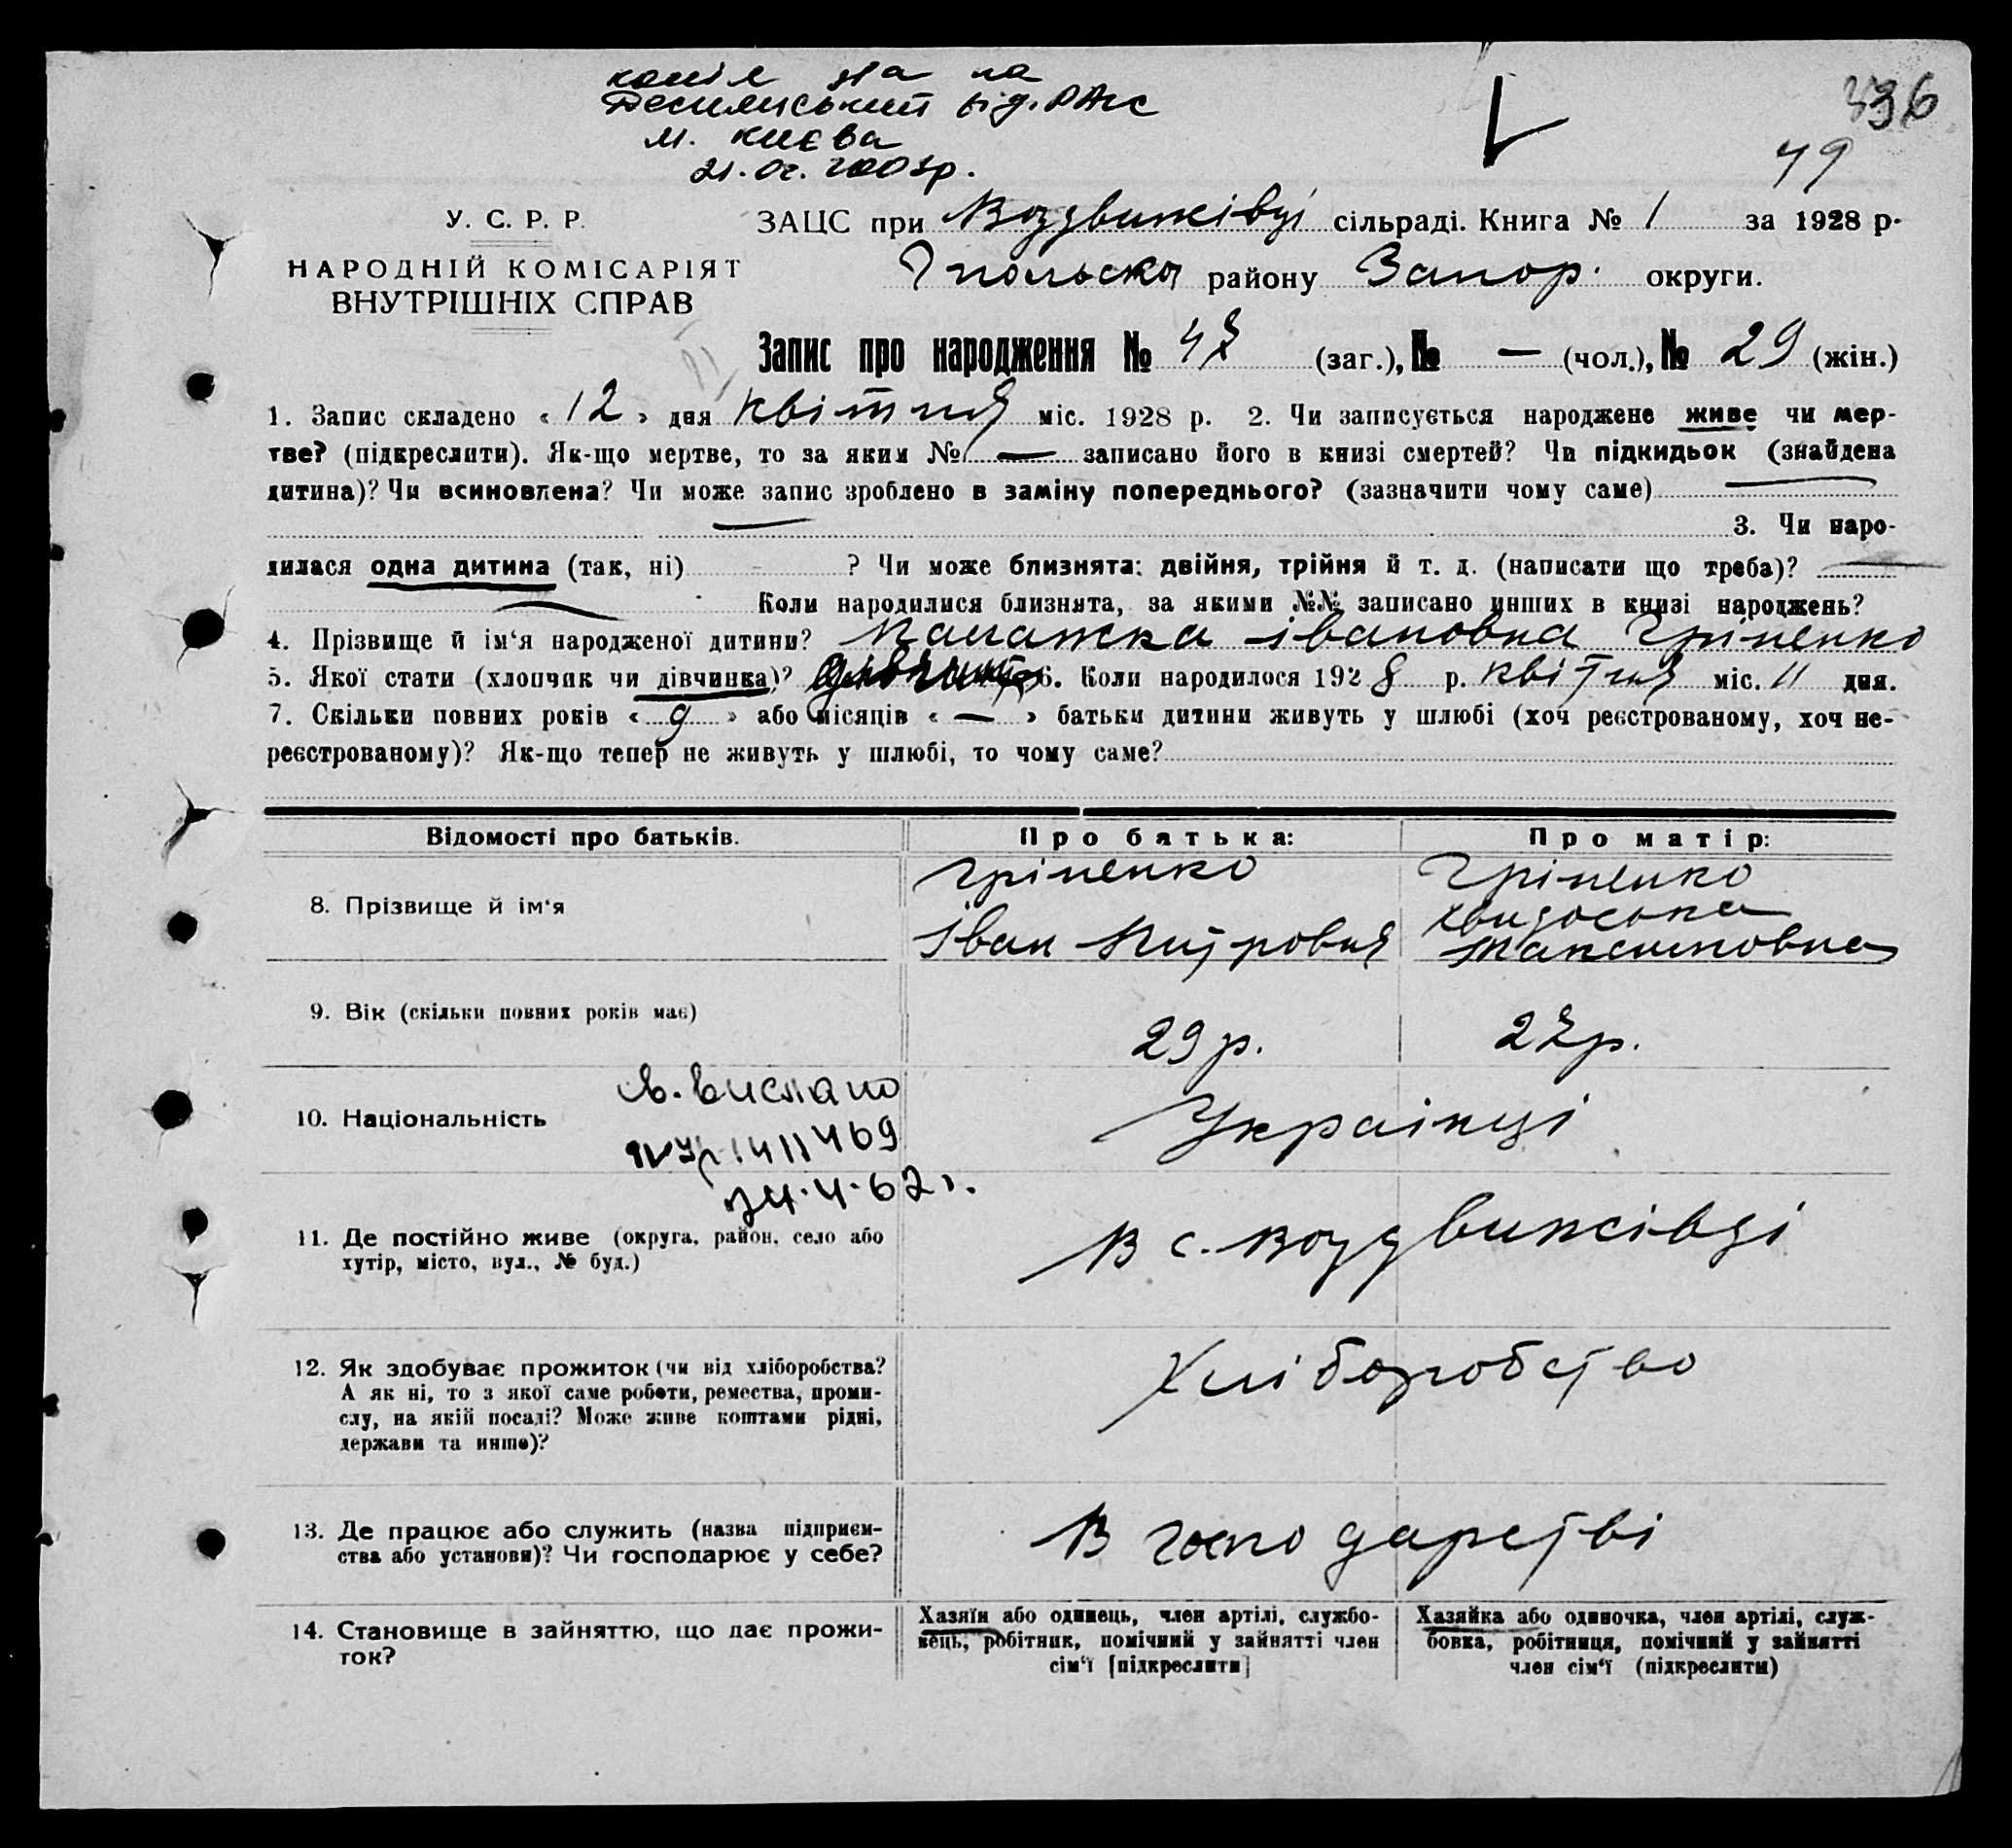 копія на
Деснянський від. РАГС
м. Києва
21.02.2003р.
336
49
У. С. Р. Р.
НАРОДНІЙ КОМІСАРІЯТ
ВНУТРІШНІХ СПРАВ
ЗАЦС при Воздвижівці сільраді. Книга № 1 за 1928 р.
Гпольська району Запор. округи.
Запис про народження № 47 (заг.), № — (чол.), № 29 (жін.)
1. Запис складено « 12 » дня квітня міс. 1928 р. 2. Чи записується народжене живе чи мер-
тве? (підкреслити). Як-що мертве, то за яким № — записано його в книзі смертей? Чи підкидьок (знайдена
дитина)? Чи всиновлена? Чи може запис зроблено в заміну попереднього? (зазначити чому саме) —
— 3. Чи наро-
дилася одна дитина (так, ні) ? Чи може близнята: двійня, трійня й т. д. (написати що треба)? —
— Коли народилися близнята, за якими №№ записано инших в книзі народжень?
4. Прізвище й ім‘я народженої дитини? Палажка івановна Гріненко
5. Якої стати (хлопчик чи дівчинка)? 6. Коли народилося 1928 р. квітня міс. 11 дня.
7. Скільки повних років « 9 » або місяців « — » батьки дитини живуть у шлюбі (хоч реєстрованому, хоч не-
реєстрованому)? Як-що тепер не живуть у шлюбі, то чому саме?
Відомості про батьків.
Про батька:
Про матір:
8. Прізвище й ім‘я
Гріненко
іван Питрович
Гріненко
Хвидоська
Максимовна
9. Вік (скільки повних років має)
29 р.
27 р.
10. Національність
Українці
св. вислано
1411469
24.4.62 г.
11. Де постійно живе (округа, район, село або
хутір, місто, вул., № буд.)
В с. Воздвижівці
12. Як здобуває прожиток (чи від хліборобства?
А як ні, то з якої саме роботи, ремества, проми-
слу, на якій посаді? Може живе коштами рідні,
держави та инше)?
Хліборобство
13. Де працює або служить (назва підприєм-
ства або установи)? Чи господарює у себе?
В господарстві
14. Становище в зайняттю, що дає прожи-
ток?
Хазяїн або одинець, член артілі, службо-
вець, робітник, помічний у зайнятті член
сім‘ї [підкреслити]
Хазяйка або одиночка, член артілі, служ-
бовка, робітниця, помічний у зайнятті
член сім‘ї (підкреслити)